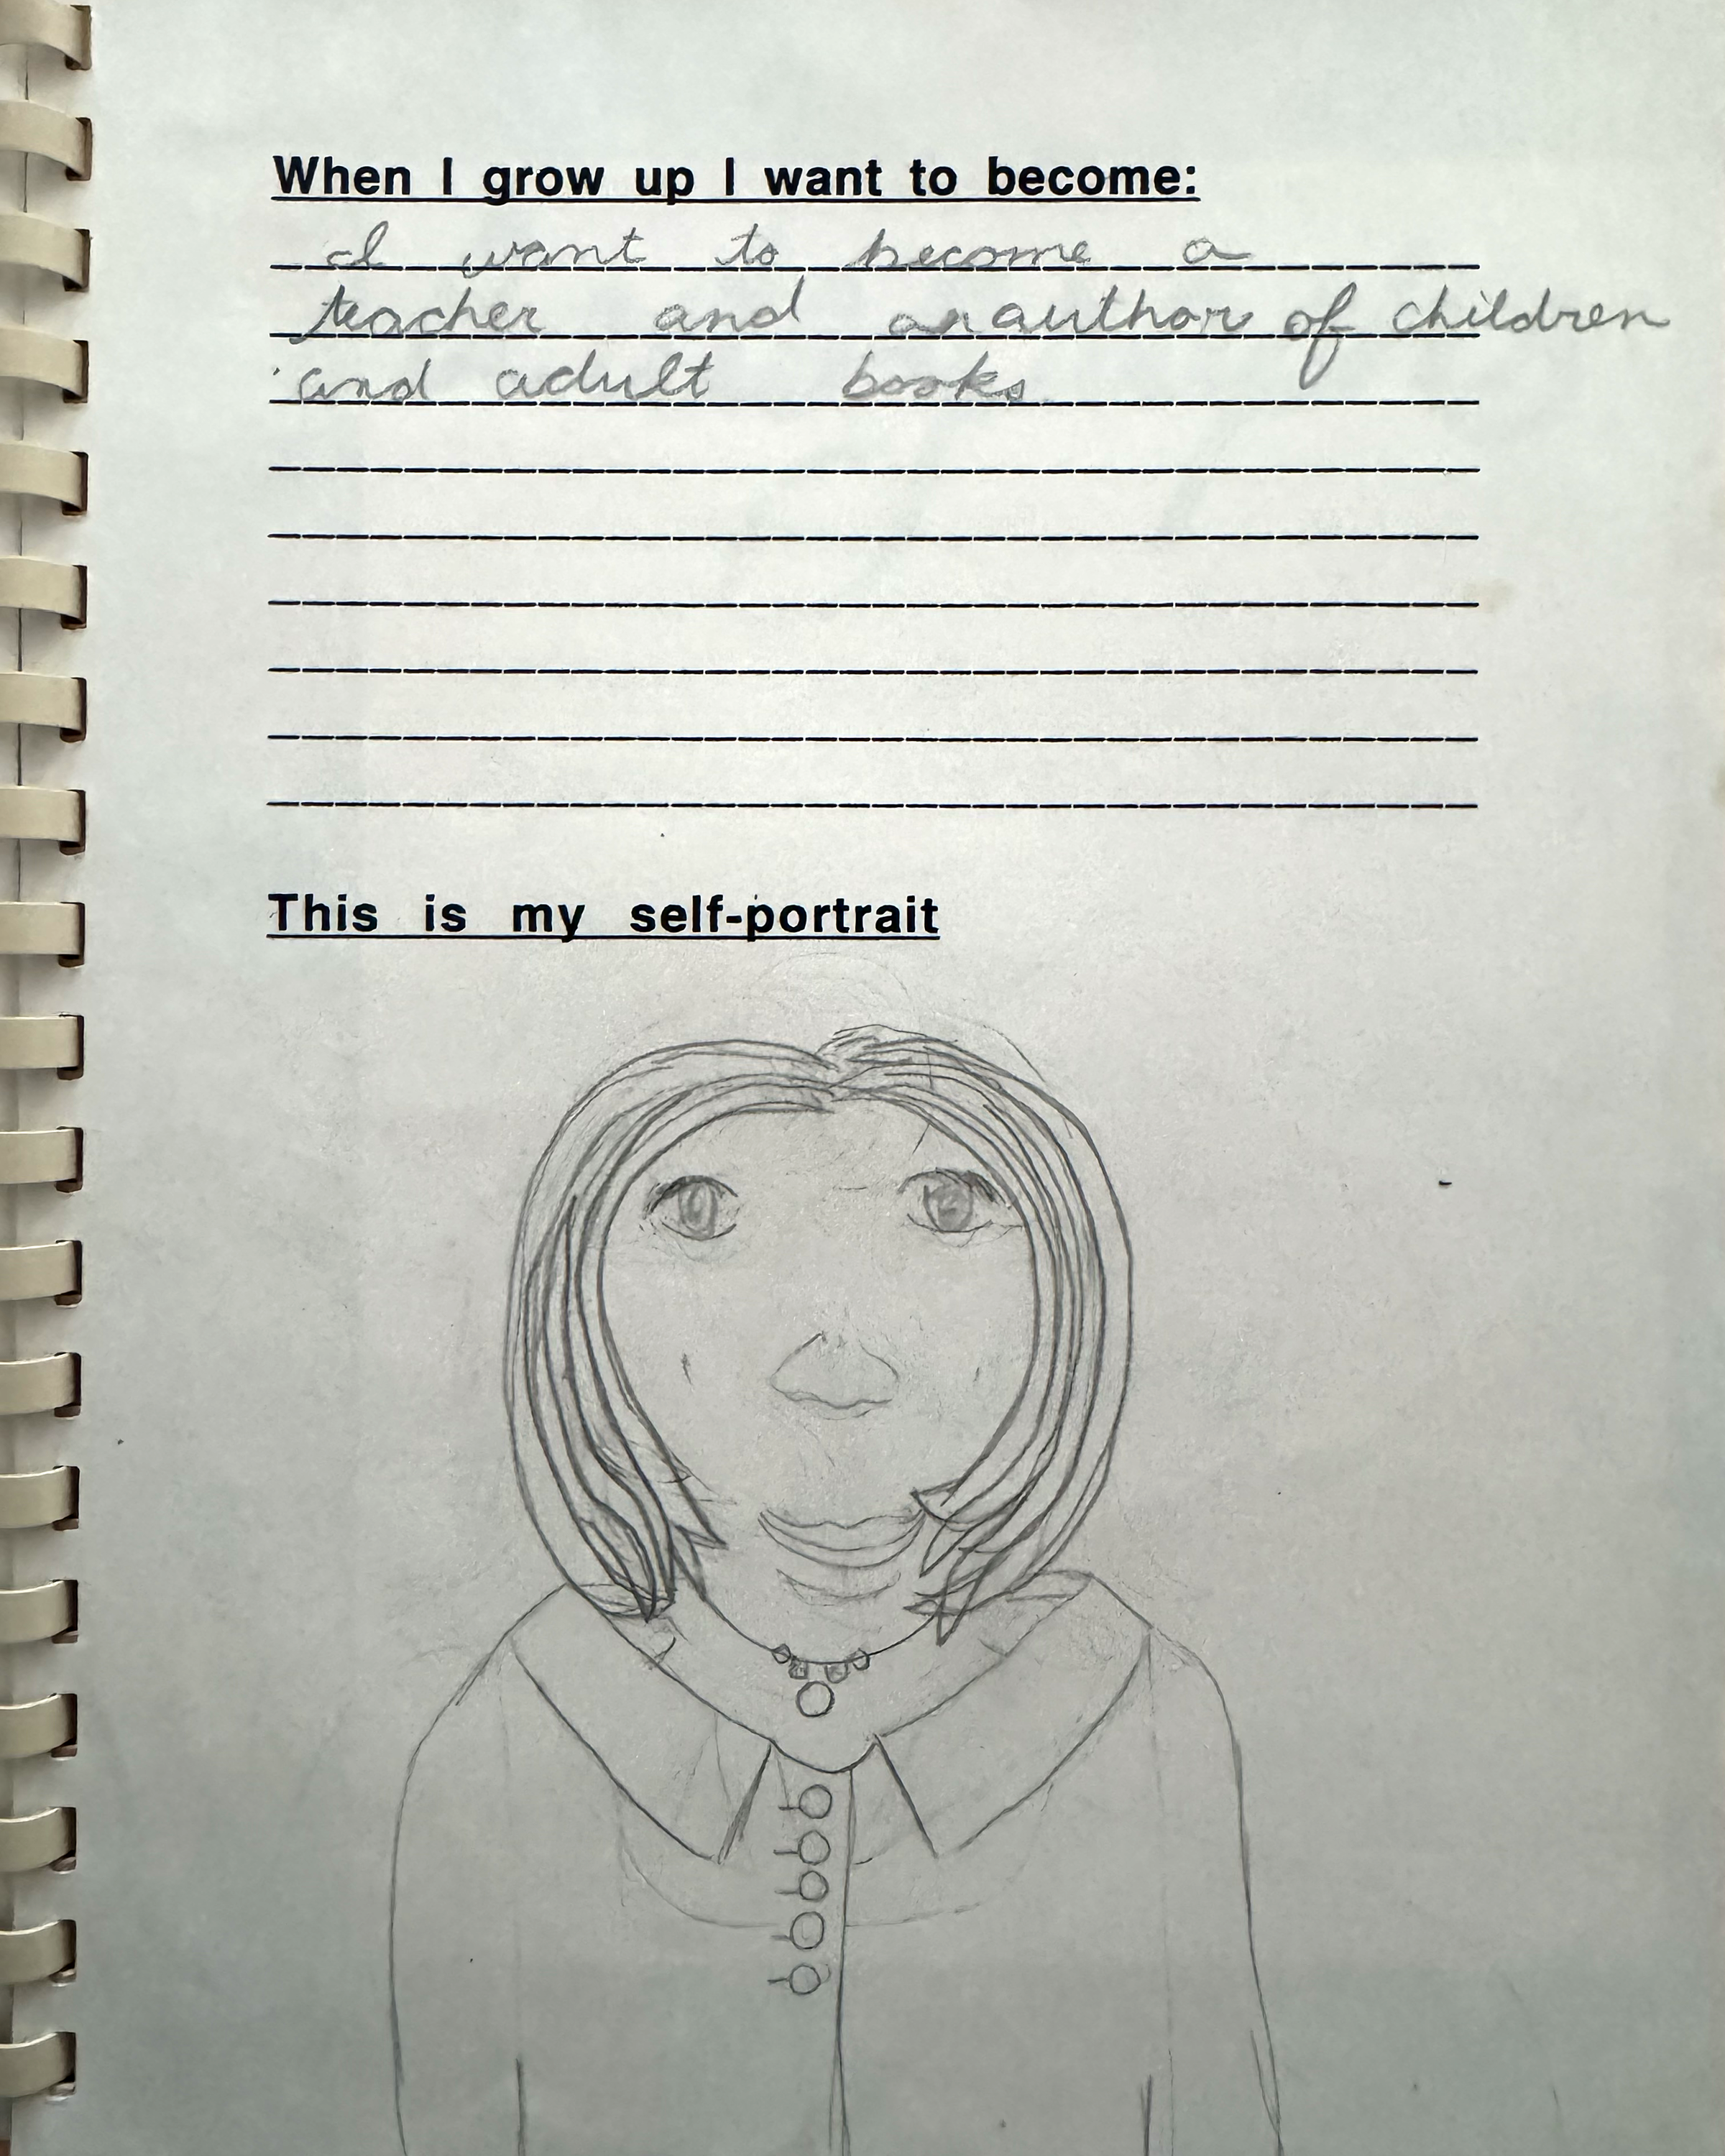 When I grow up I want to become:
I want to become a
teacher and an author of children
and adult books.
This is my self-portrait